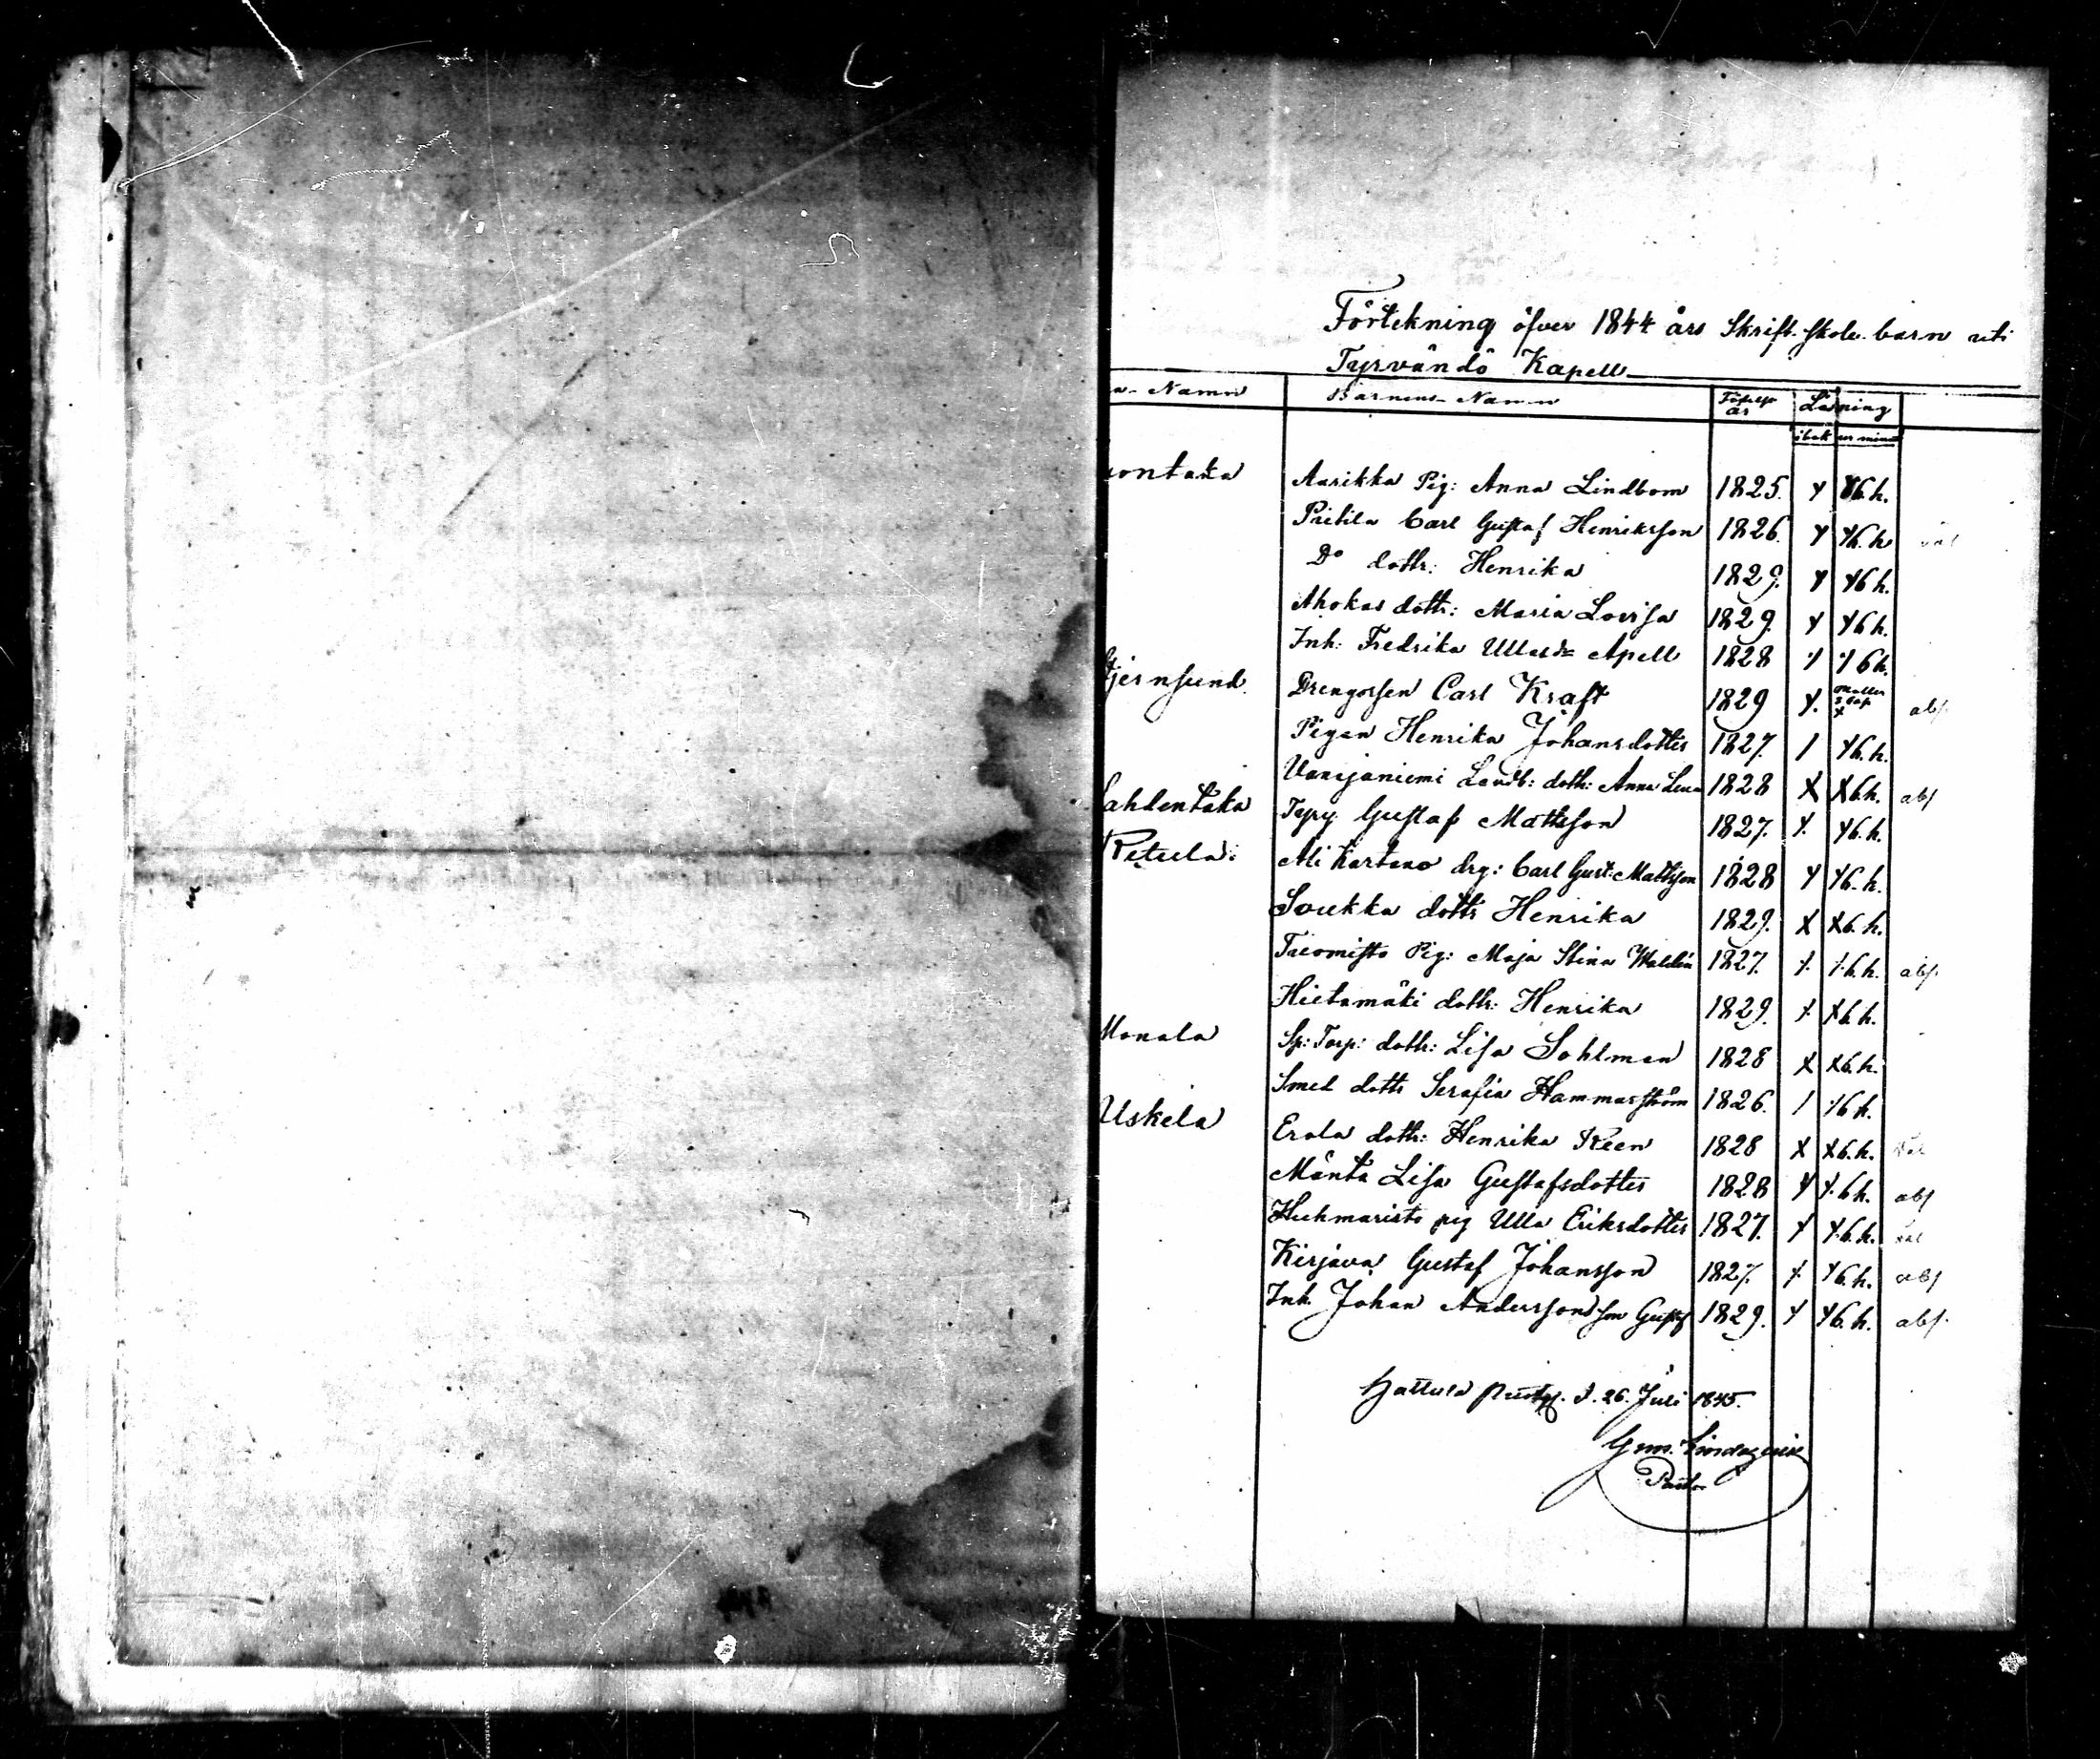 Förtekning öfver 1844 års Skrift-skole-barn uti
Tyrvändö Kapell
Namn Barnens Namn Födelse år Läsning
i bok ur minne
Aarikka Pig: Anna Lindbom 1825. 6.h.
Pritila Carl Gustaf Henriksson 1826. 6.h.
Do dottr: Henrika 1829. 6 h.
Ahokas dottr: Maria Lovisa 1829. 6 h.
Inh: Fredrika Apell 1828 6 h.
Stjernsund Drengossen Carl Kraft 1829 abs.
Pigan Henrika Johansdotter 1827. 6.h.
Landb: dottr: Anna Lena 1828 X X 6.h. abs
Lahdentaka Gustaf Mattsson 1827. 6.h.
Retula: drg: Carl Gust: Mattsson 1828 6.h.
Soukka dottr Henrika 1829. X X 6.h.
Tuomisto Pig: Maja Stina 1827. 6.h. abs.
Hietamäki dottr: Henrika 1829. X 6 h.
Monala Sp: Torp: dottr: Lisa Sohlman 1828 X X 6.h.
Smed dottr Serafia Hammarström 1826. 6 h.
Uskela Erola dottr: Henrika Reen 1828 X X 6.h.
Mäntä Lisa Gustafsdotter 1828 6 h. abs
pig Ulla Eriksdotter 1827. 6.h.
Kirjava Gustaf Johansson 1827. 6.h. abs
Inh. Johan Anderssons son Gustaf 1829. 6.h. abs.
Hattula d. 26. Juli 1845.
Pastor